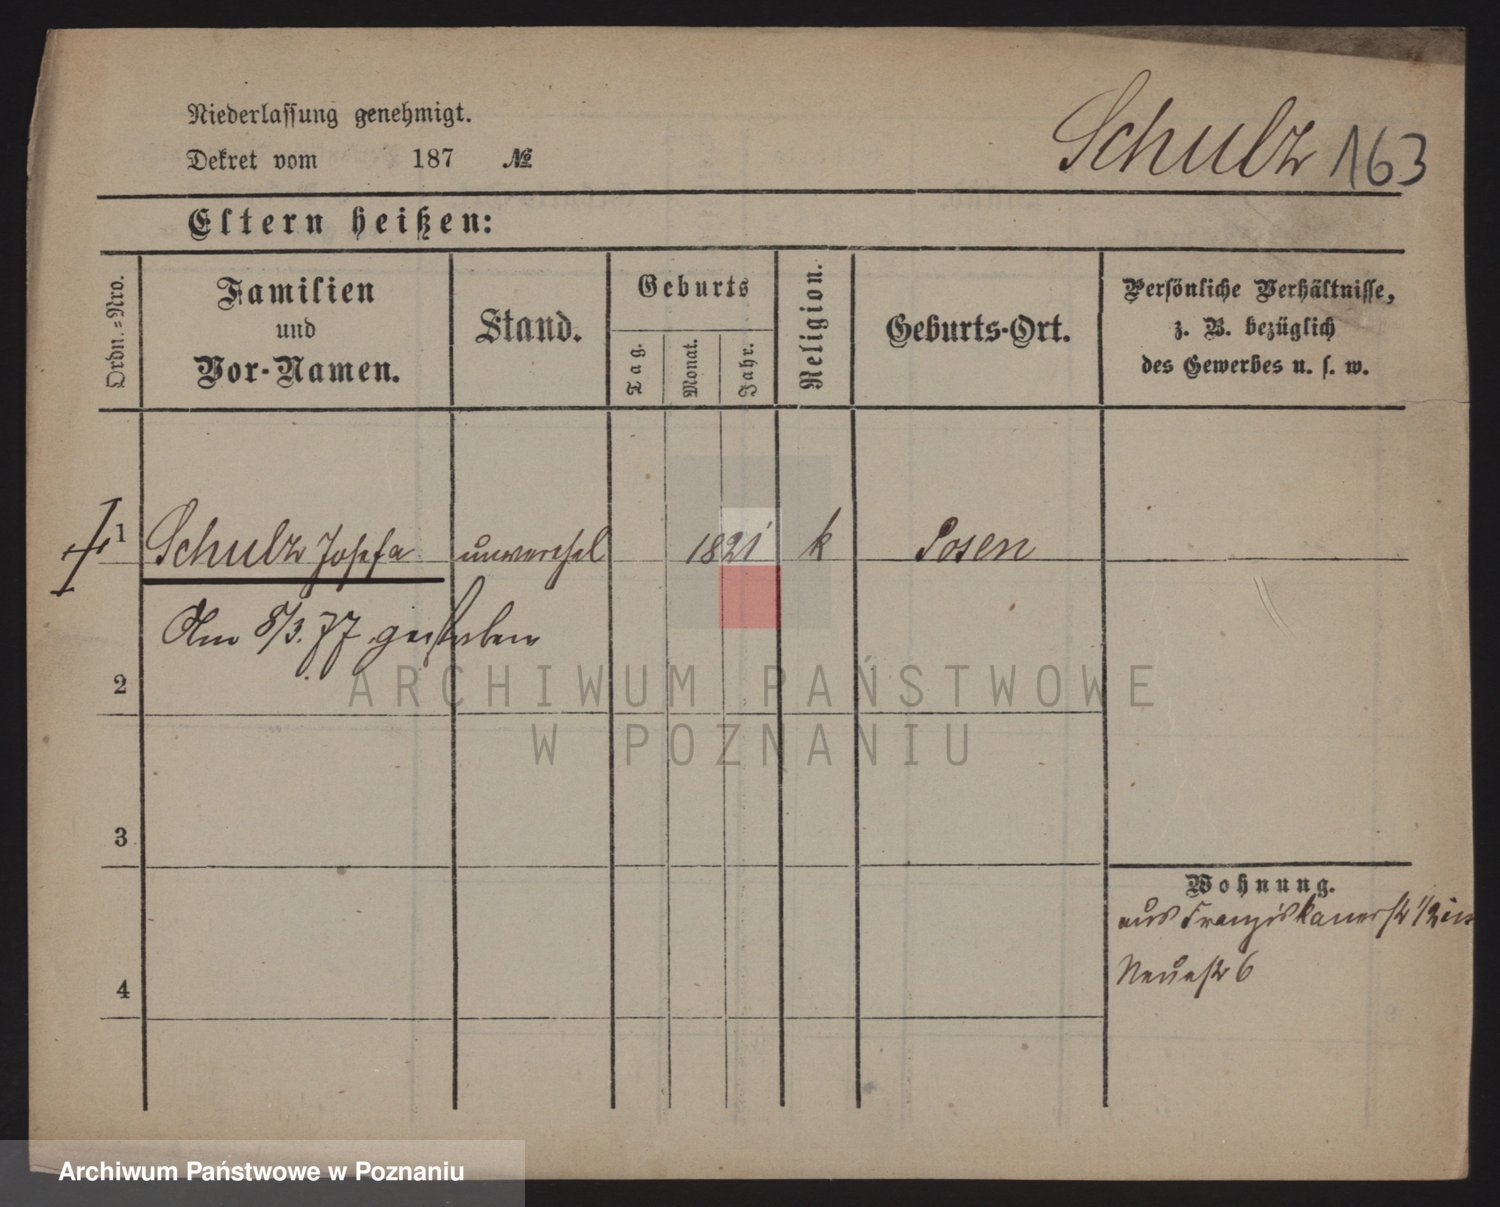 Niederlassung genehmigt.
Dekret vom 187 №
Schulz 163
Eltern heißen:
Ordn.-Nro.
Familien
und
Vor-Namen.
Stand.
Geburts
Tag.
Monat.
Jahr.
Religion.
Geburts-Ort.
Persönliche Verhältnisse,
z. B. bezüglich
des Gewerbes u. s. w.
1 Schulz Josefa unverehel 1821 k Posen
Am 8/3.77 gestorben
2
ARCHIWUM PAŃSTWOWE
W POZNANIU
3
Wohnung.
aus Franziskanerstr 1/2 in
Neuestr 6
4
Archiwum Państwowe w Poznaniu